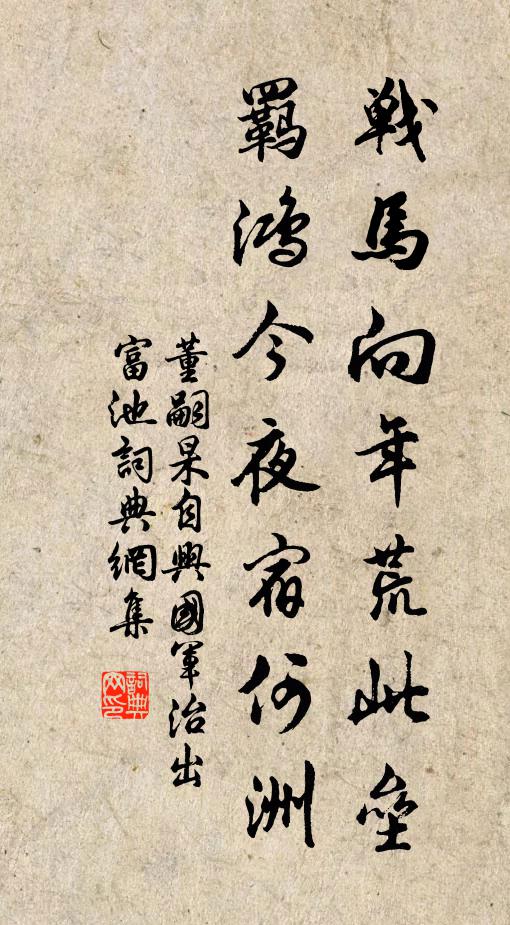 戰馬向年荒此壘
羈鴻今夜宿何洲
董嗣杲自興國軍治出
富池詞典網集
詞典
网印